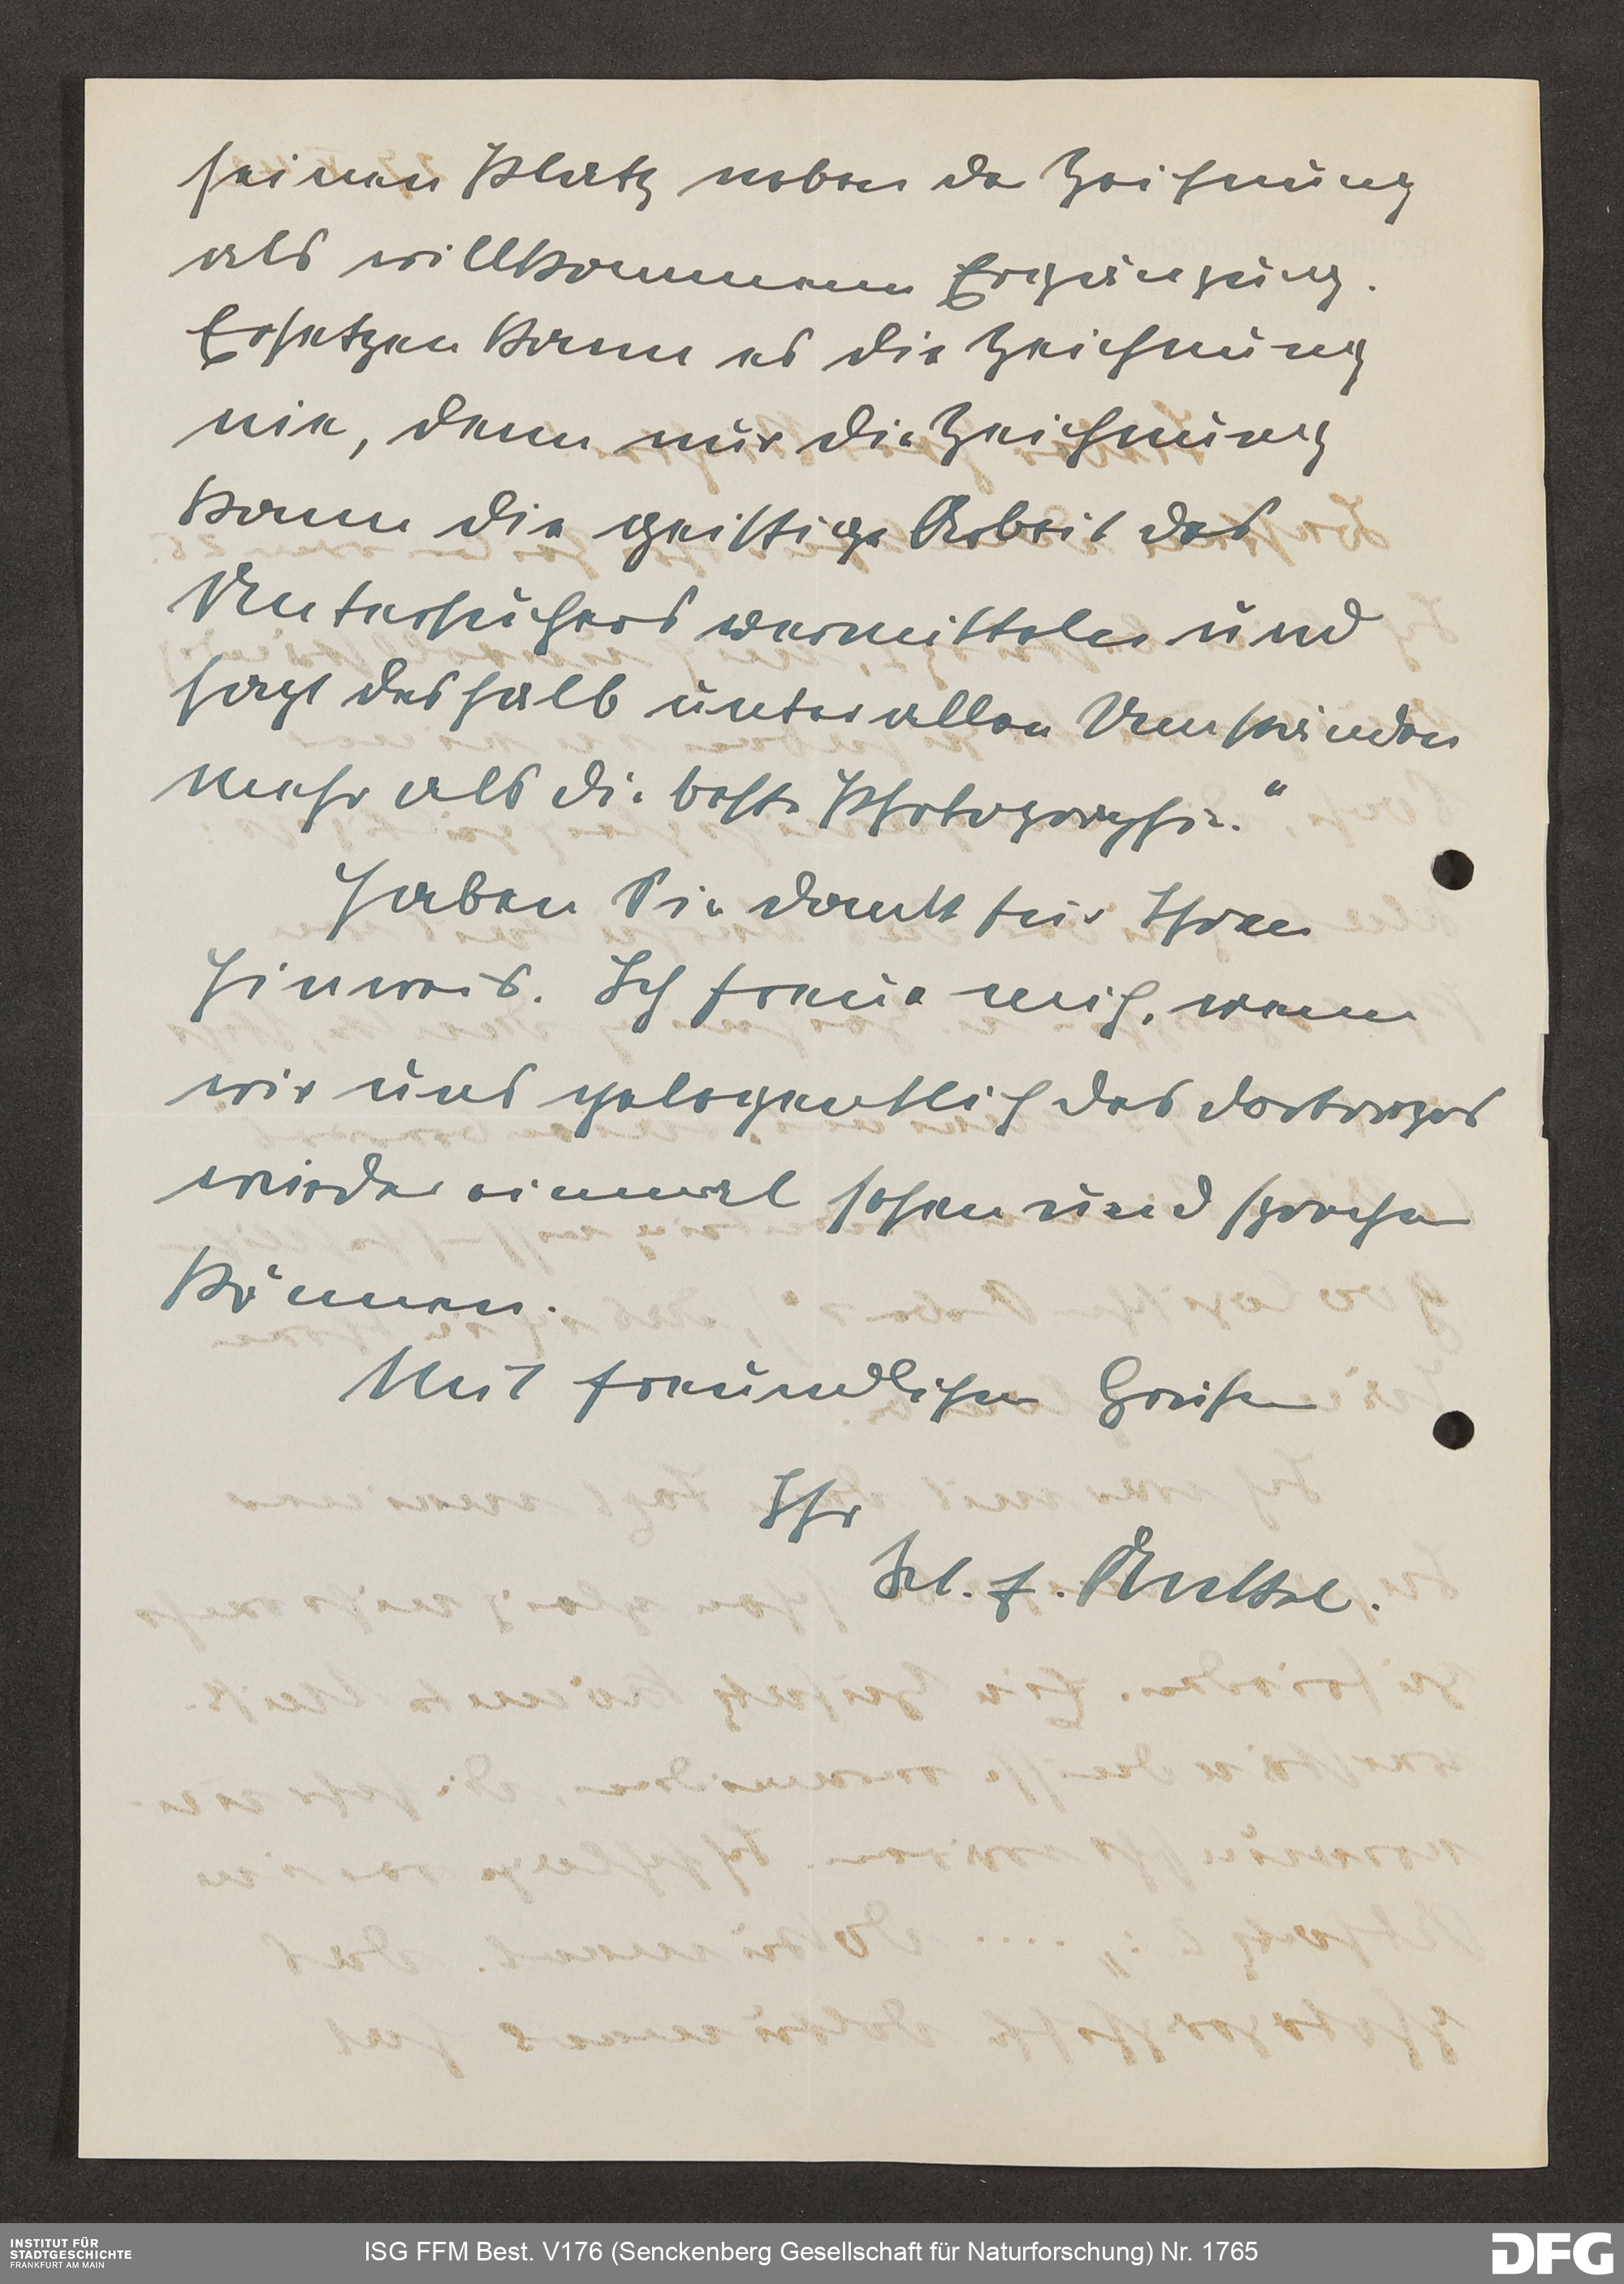 seinen Platz neben der Zeichnung
als willkommene Ergänzung.
Ersetzen kann es die Zeichnung
nie, denn nur die Zeichnung
kann die geistige Arbeit des
Untersuchers vermitteln und
sagt deshalb unter allen Umständen
mehr als die beste Photographie."
Haben Sie Dank für Ihren
Hinweis. Ich freue mich, wenn
wir uns gelegentlich des
wieder einmal sehen und sprechen
können.
Mit freundlichen Grüßen
Ihr
INSTITUT FÜR
STADTGESCHICHTE
FRANKFURT AM MAIN
ISG FFM Best. V176 (Senckenberg Gesellschaft für Naturforschung) Nr. 1765
DFG